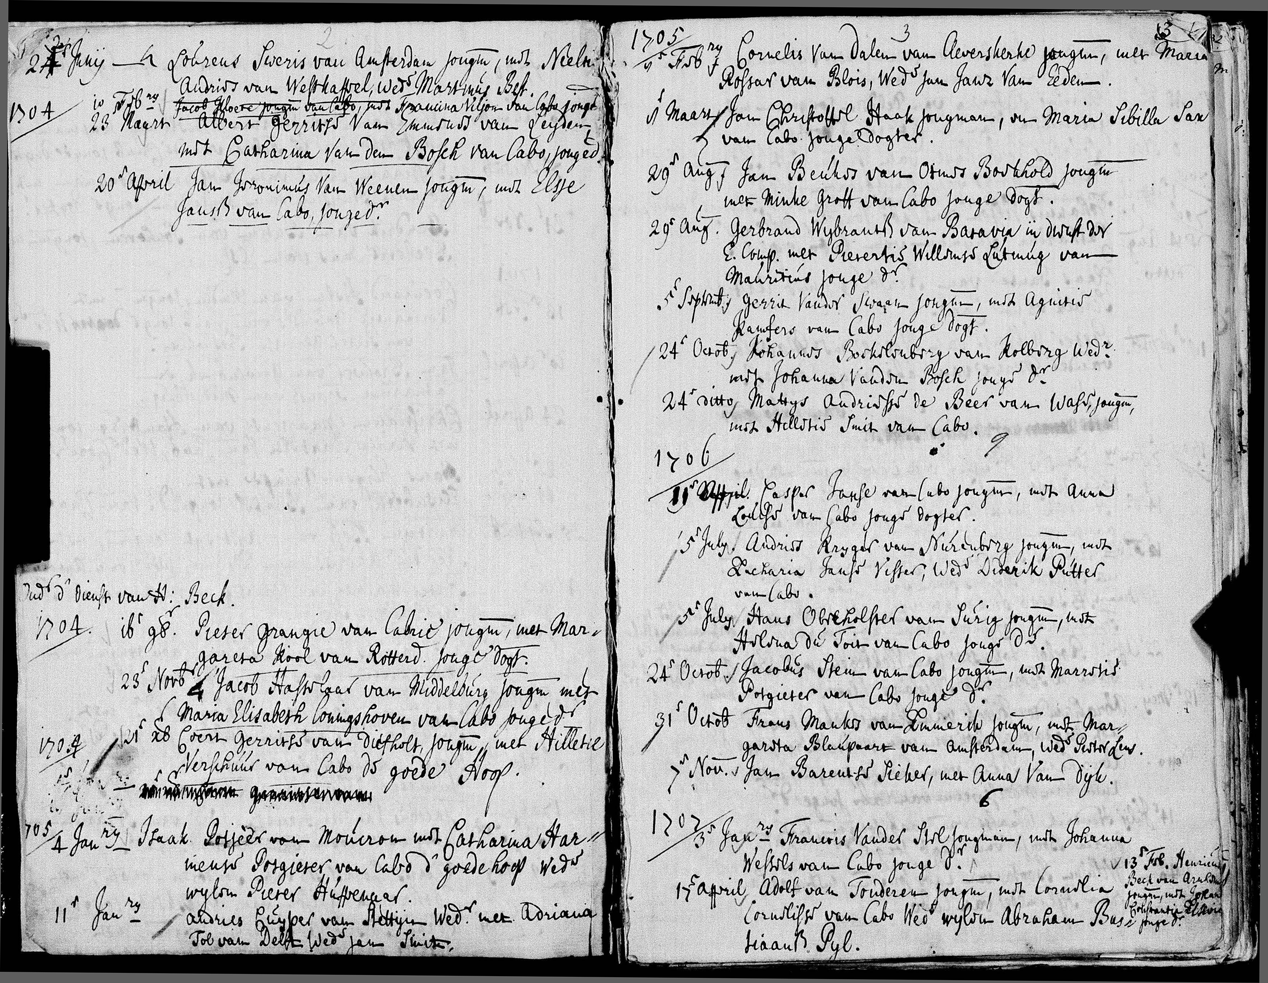 2
24 Junij Lourens Sweris van Amsterdam jongm, met Nielc
Andries van Westkappel, Wed.s Martinus Bet.
1704 10 Feb.ry Jacob Cloete jongm van Cabo, met Francina Viljon van Cabo jongd
23 Maart Albert Gerritsz Van Emmenes van Leijden
met Catharina Van den Bosch van Cabo, jonge d.
20 April Jan Jeronimus Van Weenen jongm, met Elsje
Jansz van Cabo, jonge d.r
Ind.r d' dienst van H: Beck.
1704. 16 9b.r Pieter Grangie van Cabrie jongm, met Mar-
gareta Kool van Rotterd. jonge Dogt.
23 Novb Jacob Hasselaar van Middelburg jongm met
Maria Elisabeth Coningshoven van Cabo jonge d.r
1704 21 xb Coert Gerritse van Diefholt, jongm, met Hilletie
Verschuur van Cabo de goede Hoop.
1705
4 Jan.ry Isaak Potjeer van Moucron met Catharina Har-
mense Potgieter van Cabo d' goede hoop Wed.e
wylen Pieter Huffenaar.
11 Jan.ry Andries Kuyper van Stettyn Wed.r met Adriana
Tol van Delft Wed.e Jan Smit.
3
1705
9 Feb.ry Cornelis Van Dalen van Cleverskerke jongm, met Maria
Rossar van Blois, Wed.e Jan Jansz Van Eeden.
1 Maart Jan Christoffel Haak jongman, en Maria Sibilla Sax
van Cabo jonge Dogter.
29 Aug Jan Beukes van Bockhold jongm
met Minke Groff van Cabo jonge Dogt.
29 Aug. Gerbrand Wybrants van Batavia in dienst der
E. Comp. met Pieternis Willemse Lutning van
Mauritius jonge d.r
5 Septemb Gerrit Vander Swaan jongm, met Agnitie
Kamfers van Cabo jonge Dogt.
24 Octob Johannes Bockelenberg van Kolberg Wed.r
met Johanna Vanden Bosch jonge d.r
24 ditto Mattys Andriesse de Beer van Wass, jongm,
met Hilletie Smit van Cabo.
9
1706
11 April. Casper Janse van Cabo jongm, met Anna
Loutse van Cabo jonge dogter.
5 July. Andries Kruger van Nurenberg jongm, met
Zacharia Janse Visser, Wed.e Diderik Putter
van Cabo.
5 July Hans Oberholster van Surig jongm, met
Helena du Toit van Cabo jonge d.r
24 Octob Jacobus Stein van Cabo jongm, met Marretie
Potgieter van Cabo jonge d.r
31 Octob Frans Mankes van Emmerik jongm, met Mar-
gareta Blaupaart van Amsterdam, Wed.e Pieter Lew.
7 Nov. Jan Barentse Sieker, met Anna Van Dyk.
6
1707
3 Jan.ry Francois Vander Stel jongman, met Johanna
Wessels van Cabo jonge d.r
13 Feb. Henricus
Beck van Arnhem
jongm, met Johanna
Constantia Elsevier
jonge d.r
17 April Adolf van Tonderen jongm, met Cornelia
Cornelisse van Cabo Wed.e wylen Abraham Bas-
tiaansz Pyl.